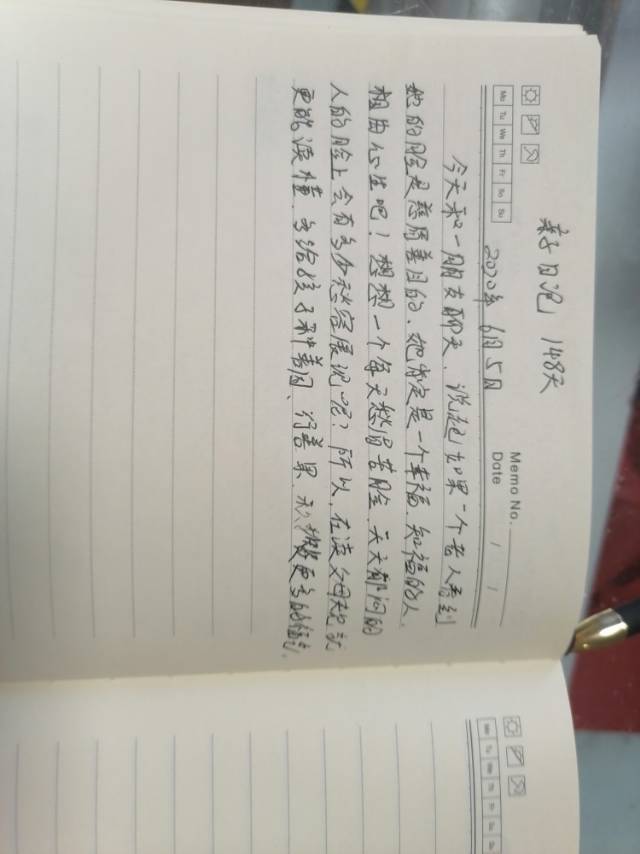 亲子日记 148天
Memo No.
Mo Tu We Th Fr Sa Su
Date / /
2020年6月5日
今天和一朋友聊天、说起如果一个老人看到
她的脸是慈眉善目的、她肯定是一个幸福、知福的人、
相由心生吧！想想一个每天愁眉苦脸、天天郁闷的
人的脸上会有多少慈容展现呢？所以、在读父母规就
更能读懂、多给孩子种善因、行善果、积攒更多的福气、
Mo Tu We Th Fr Sa Su